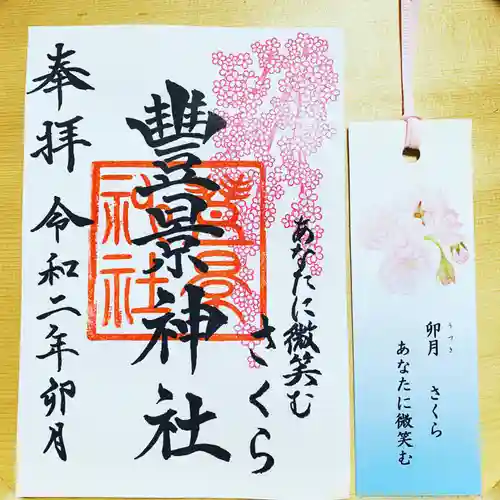 あなたに微笑む
さくら
豊景神社
豊景
神社
奉拝 令和二年卯月
卯月 さくら
うづき
あなたに微笑む